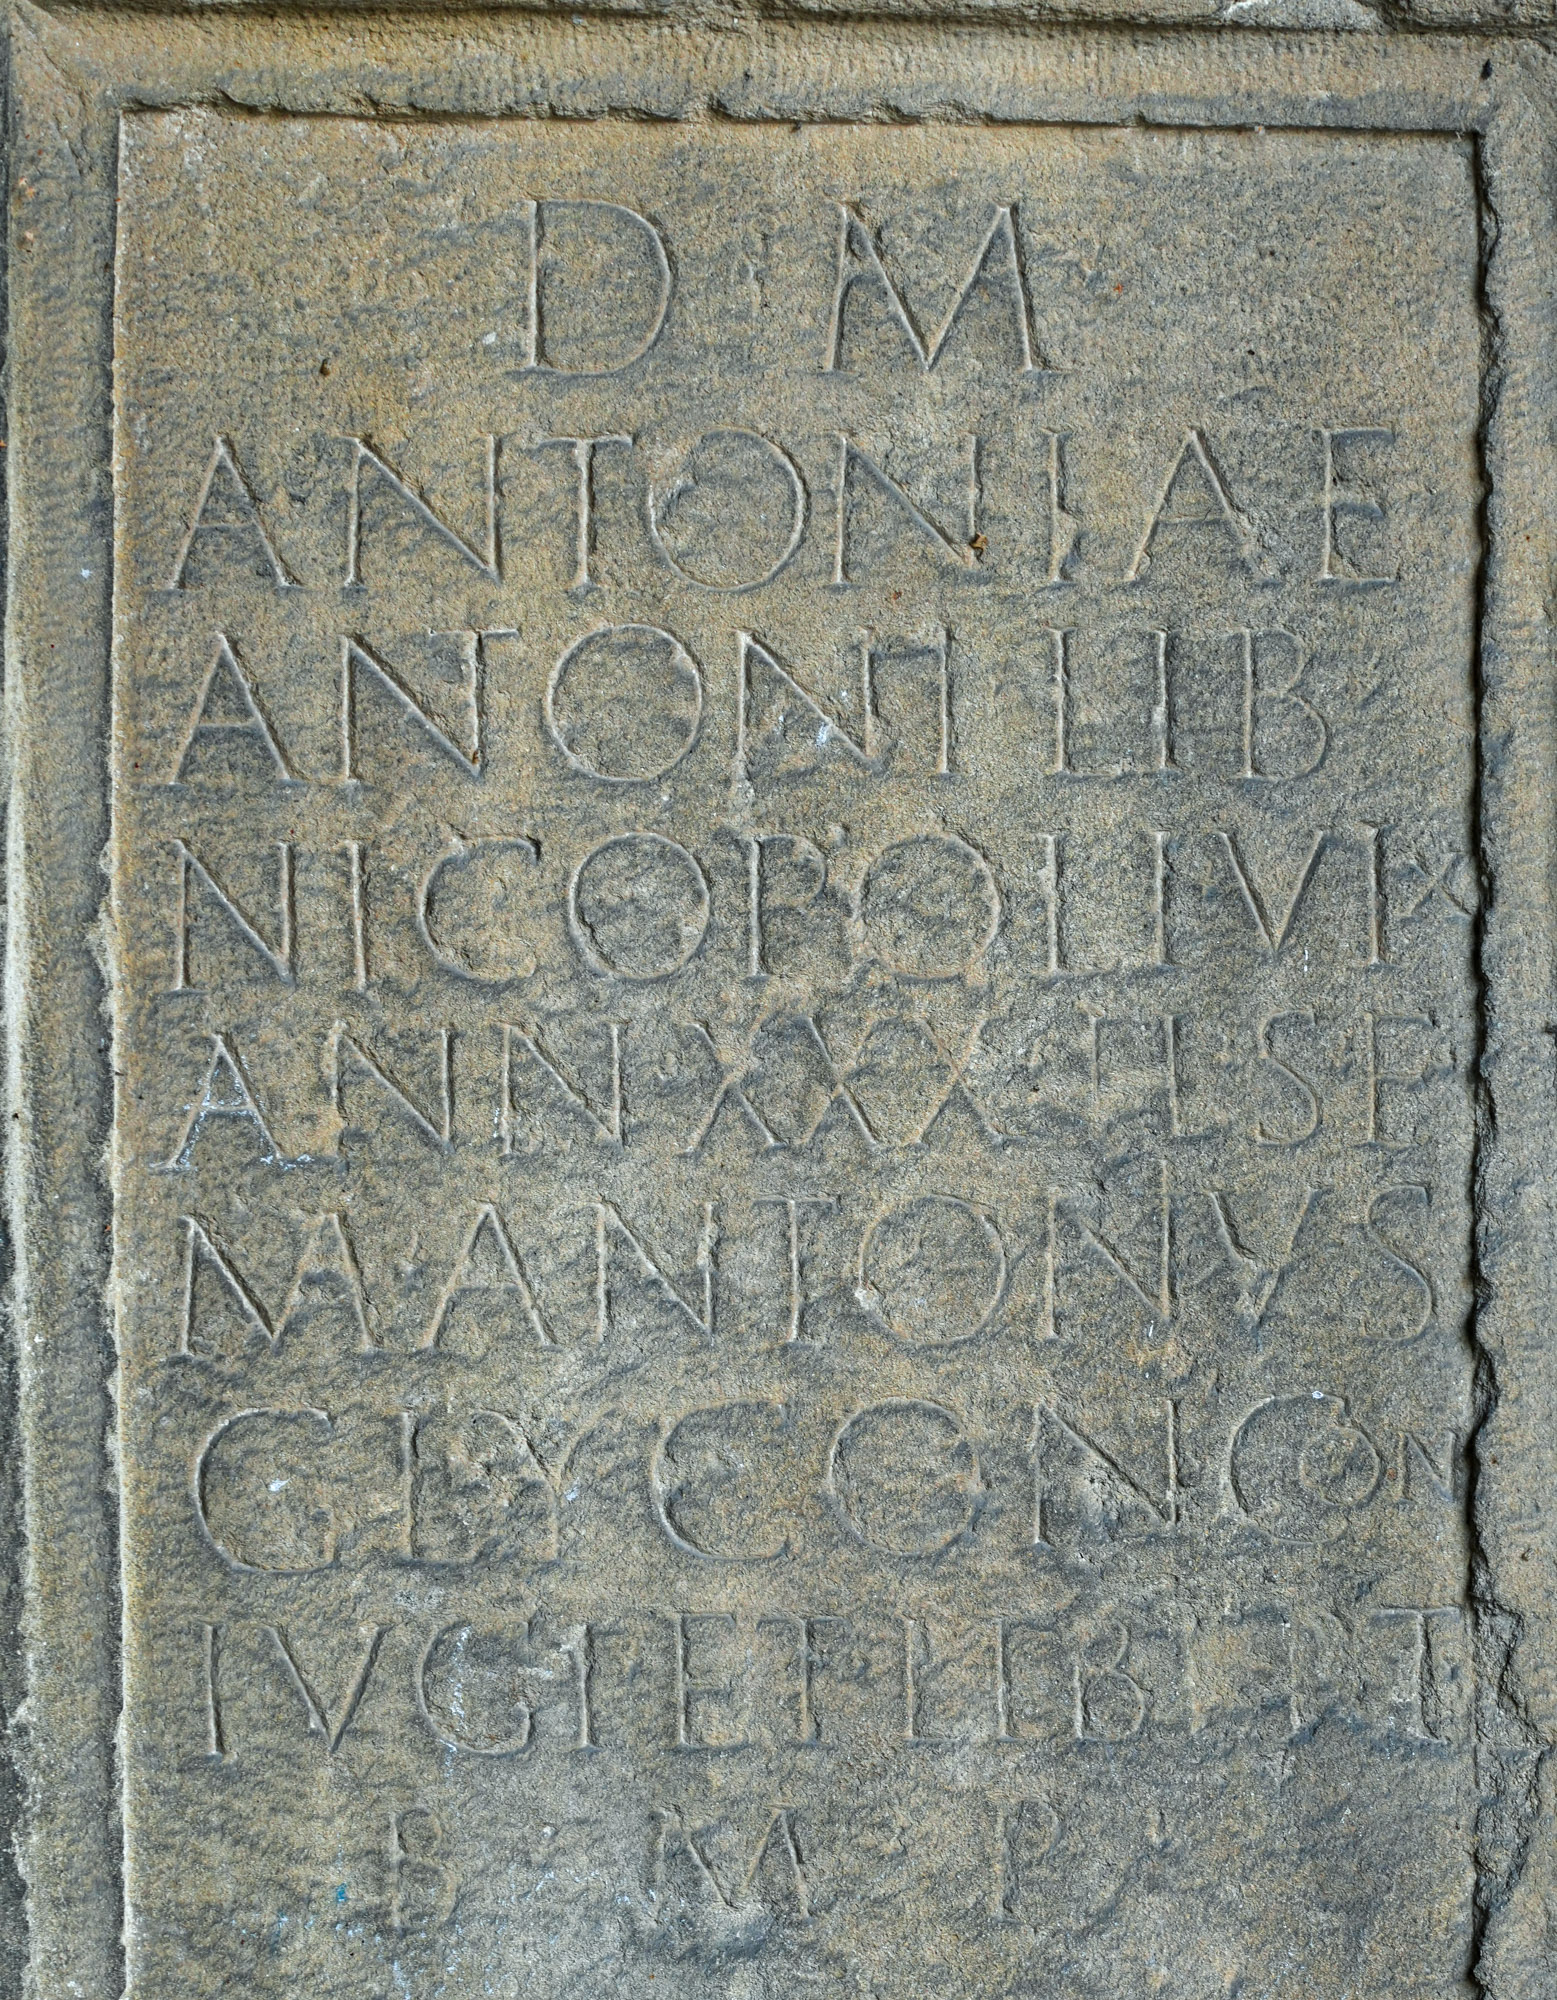 D M
ANTONIAE
ANTONI LIB
NICOPOLI VIX
ANN XXX H S E
M ANTONIVS
GLYCON CON
IVGI ET LIBERT
B M P